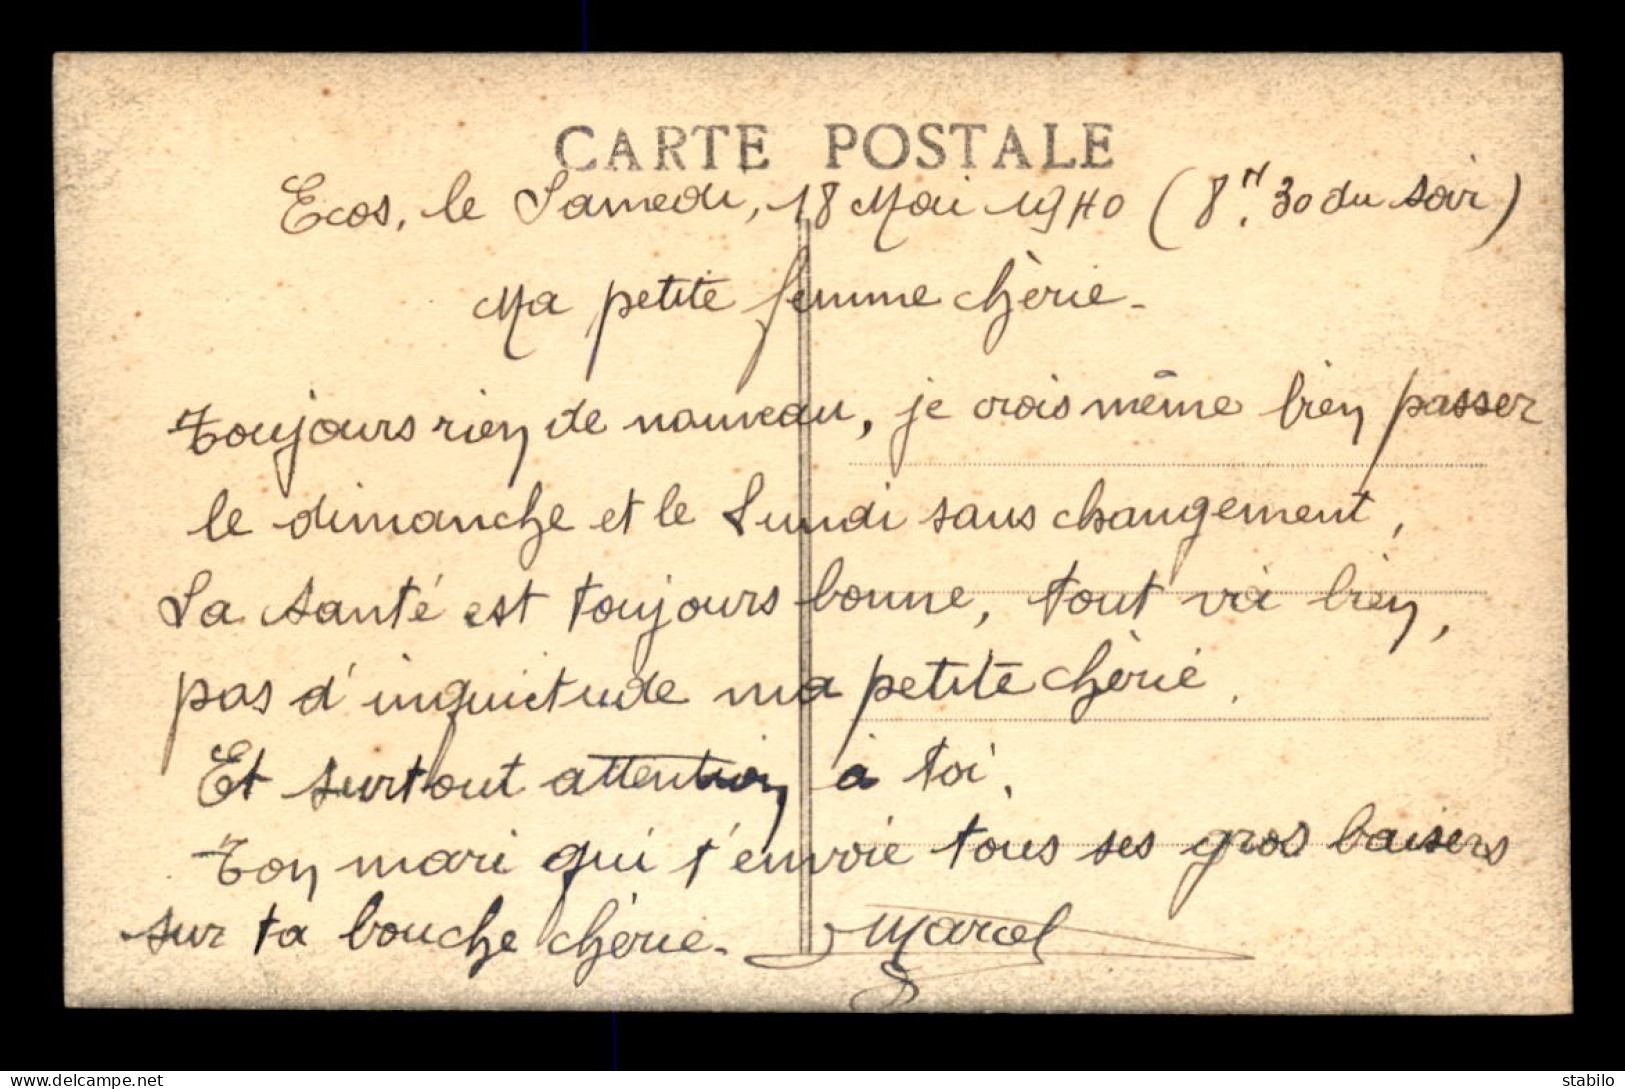 CARTE POSTALE
Ecos, le Samedi, 18 Mai 1940 (8H.30 du soir)
Ma petite femme chèrie -
Toujours rien de nouveau, je crois même bien passer
le dimanche et le Lundi sans changement,
La santé est toujours bonne, tout va bien,
pas d'inquietude ma petite chèrie.
Et surtout attention à toi.
Ton mari qui t'envoie tous ses gros baisers
sur ta bouche chèrie - Marcel
delcampe.net
stabilo